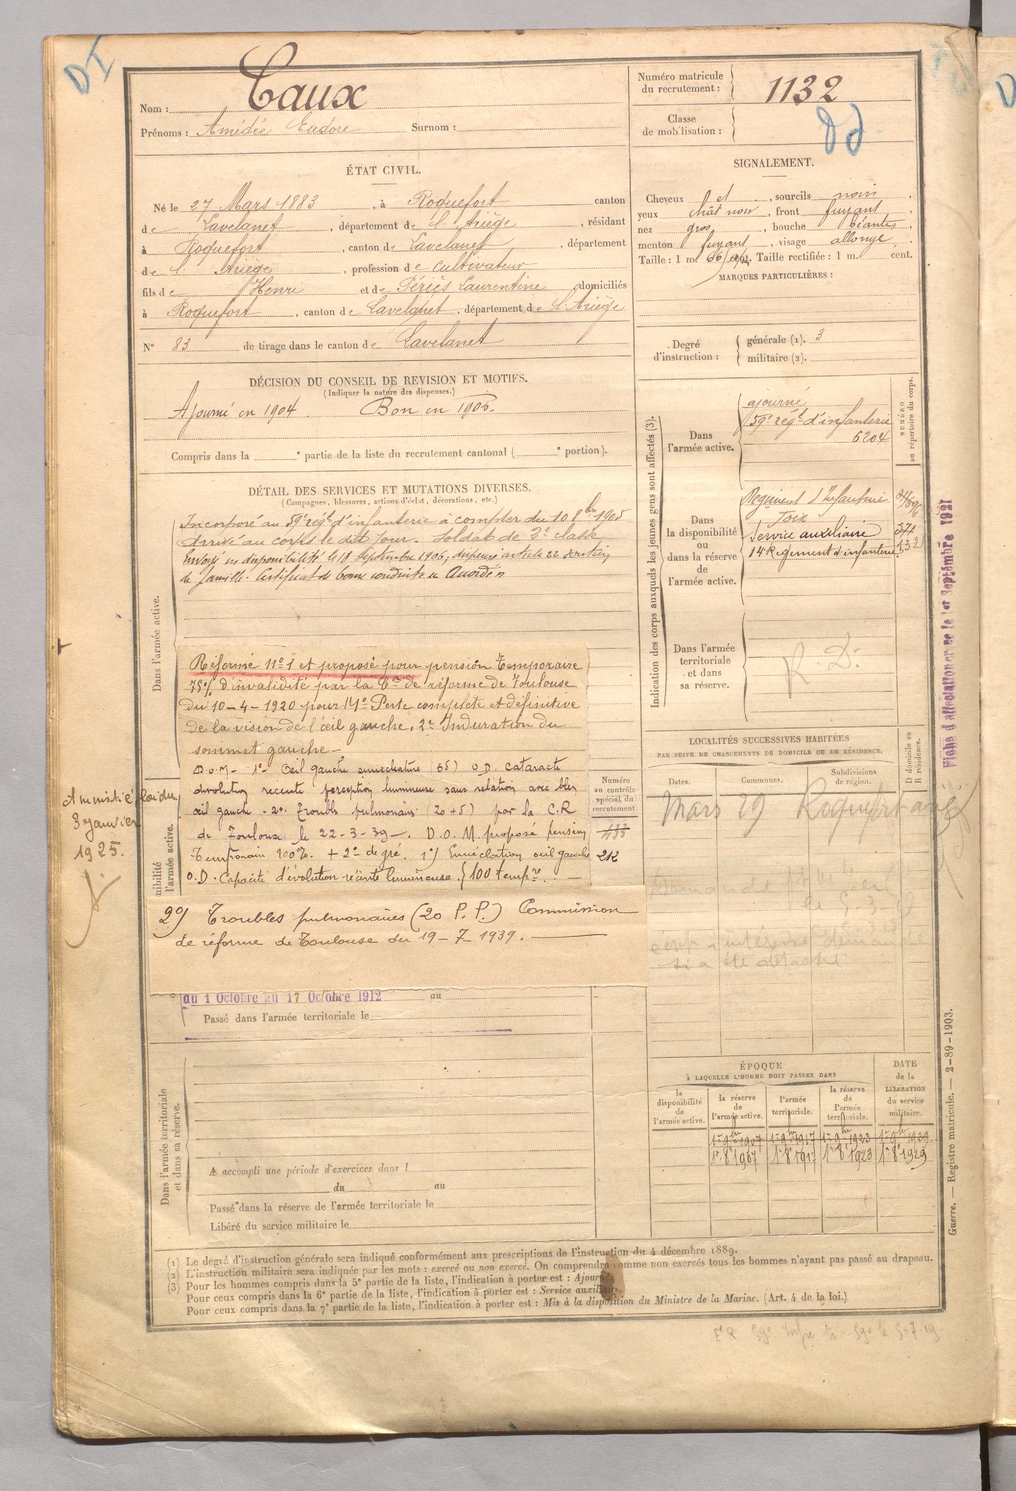 DI
Nom : Caux
Prénoms : Amédée Eudore Surnom :
Numéro matricule
du recrutement : 1132
Classe
de mobilisation :
ÉTAT CIVIL.
Né le 27 Mars 1883, à Roquefort canton
de Lavelanet, département de l'Ariège, résidant
à Roquefort, canton de Lavelanet, département
de l'Ariège, profession de cultivateur
fils de Henri et de Périès Laurentine domiciliés
à Roquefort, canton de Lavelanet, département de l'Ariège
N° 83 de tirage dans le canton de Lavelanet
SIGNALEMENT.
Cheveux et, sourcils noirs,
yeux chât noir, front fuyant
nez gros, bouche béante,
menton fuyant, visage allongé.
Taille : 1 m. 66 cent. Taille rectifiée : 1 m. cent.
MARQUES PARTICULIÈRES :
Degré
d'instruction :
générale (1). 3
militaire (2).
DÉCISION DU CONSEIL DE REVISION ET MOTIFS.
(Indiquer la nature des dispenses.)
Ajourné en 1904 Bon en 1905.
Compris dans la e partie de la liste du recrutement cantonal ( e portion).
DÉTAIL DES SERVICES ET MUTATIONS DIVERSES.
(Campagnes, blessures, actions d'éclat, décorations, etc.)
Dans l'armée active.
Incorporé au 59e régt d'infanterie à compter du 10 8bre 1905
Arrivé au corps le dit jour. Soldat de 2e classe
Envoyé en disponibilité le 18 Septembre 1906, dispensé article 22 soutien
de famille. Certificat de bonne conduite "Accordé"
Réformé n° 1 et proposé pour pension temporaire
75% d'invalidité par la Con de réforme de Toulouse
du 10-4-1920 pour 1° Perte complète et définitive
de la vision de l'œil gauche, 2° Induration du
sommet gauche -
D.O.M- 1°- Œil gauche enucléature (65) O.D. cataracte
évolution récente perception lumineuse sans relation avec bles
œil gauche - 2° Troubles pulmonaires (20+5) par la C.R
de Toulouse le 22-3-39 -. D.O.M. proposé pension
Temporaire 100% + 2° degré. 1°/ Enucléation œil gauche
O.D - Capacité d'évolution récente lumineuse. } 100 tempre.
2°/ Troubles pulmonaires (20 P.P.) Commission
de réforme de Toulouse du 19-7-1939.
Amnistié loi du
3 janvier
1925.
Numéro
au contrôle
spécial du
recrutement.
433
212
du 1 Octobre au 17 Octobre 1912 au
Passé dans l'armée territoriale le
Dans l'armée territoriale
et dans sa réserve.
A accompli une période d'exercices dans l
du au
Passé dans la réserve de l'armée territoriale le
Libéré du service militaire le
Indication des corps auxquels les jeunes gens sont affectés (3).
NUMÉRO
au répertoire du corps.
Dans
l'armée active.
ajourné
59e régt d'infanterie
6204
Dans
la disponibilité
ou
dans la réserve
de
l'armée active.
Régiment d'Infanterie
Foix
Service auxiliaire
14e Régiment d'infanterie
Dans l'armée
territoriale
et dans
sa réserve.
R.D.
Fiche d'affectation créée le 1er Septembre 1921
LOCALITÉS SUCCESSIVES HABITÉES
PAR SUITE DE CHANGEMENTS DE DOMICILE OU DE RÉSIDENCE.
Dates. Communes. Subdivisions
de région. D domicile ou
R résidence.
Mars 29 Roquefort
ÉPOQUE
À LAQUELLE L'HOMME DOIT PASSER DANS
la
disponibilité
de
l'armée active.
la réserve
de
l'armée active.
l'armée
territoriale.
la réserve
de
l'armée
territoriale.
DATE
de la
LIBÉRATION
du service
militaire.
1er 9bre 1907 1er 9bre 1917 1er 9bre 1923 1er 9bre 1929
1er 8bre 1907 1er 8bre 1917 1er 8bre 1923 1er 8bre 1929
(1) Le degré d'instruction générale sera indiqué conformément aux prescriptions de l'instruction du 4 décembre 1889.
(2) L'instruction militaire sera indiquée par les mots : exercé ou non exercé. On comprendra comme non exercés tous les hommes n'ayant pas passé au drapeau.
(3) Pour les hommes compris dans la 5e partie de la liste, l'indication à porter est : Ajourné
Pour ceux compris dans la 6e partie de la liste, l'indication à porter est : Service auxiliaire.
Pour ceux compris dans la 7e partie de la liste, l'indication à porter est : Mis à la disposition du Ministre de la Marine. (Art. 4 de la loi.)
Guerre. — Registre matricule. — 2-89-1903.